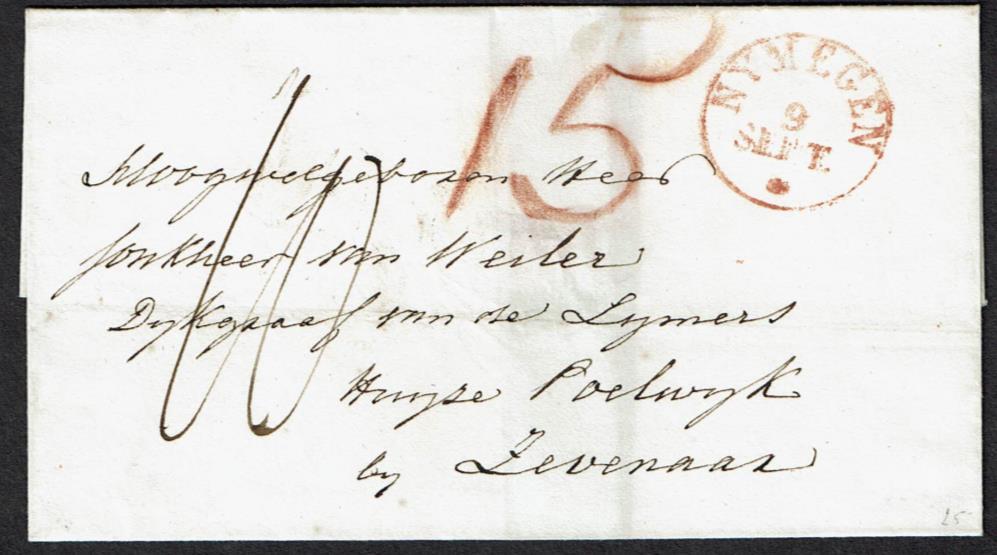 15
NYMEGEN
9
SEPT.
Hoogwelgeboren Heer
Jonkheer van Weiler
Dykgraaf van de Lymers
Huize Poelwyk
by Zevenaar
25